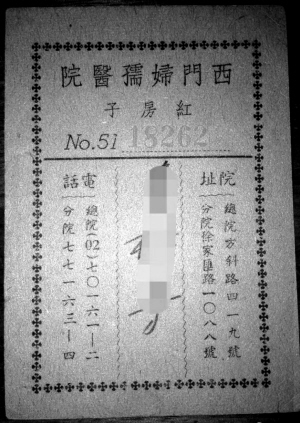 院醫孺婦門西
子房紅
No.51 18262
院址
總院方斜路四一九號
分院徐家匯路一〇八八號
電話
總院(02)七〇一六一—二
分院七七一六三—四